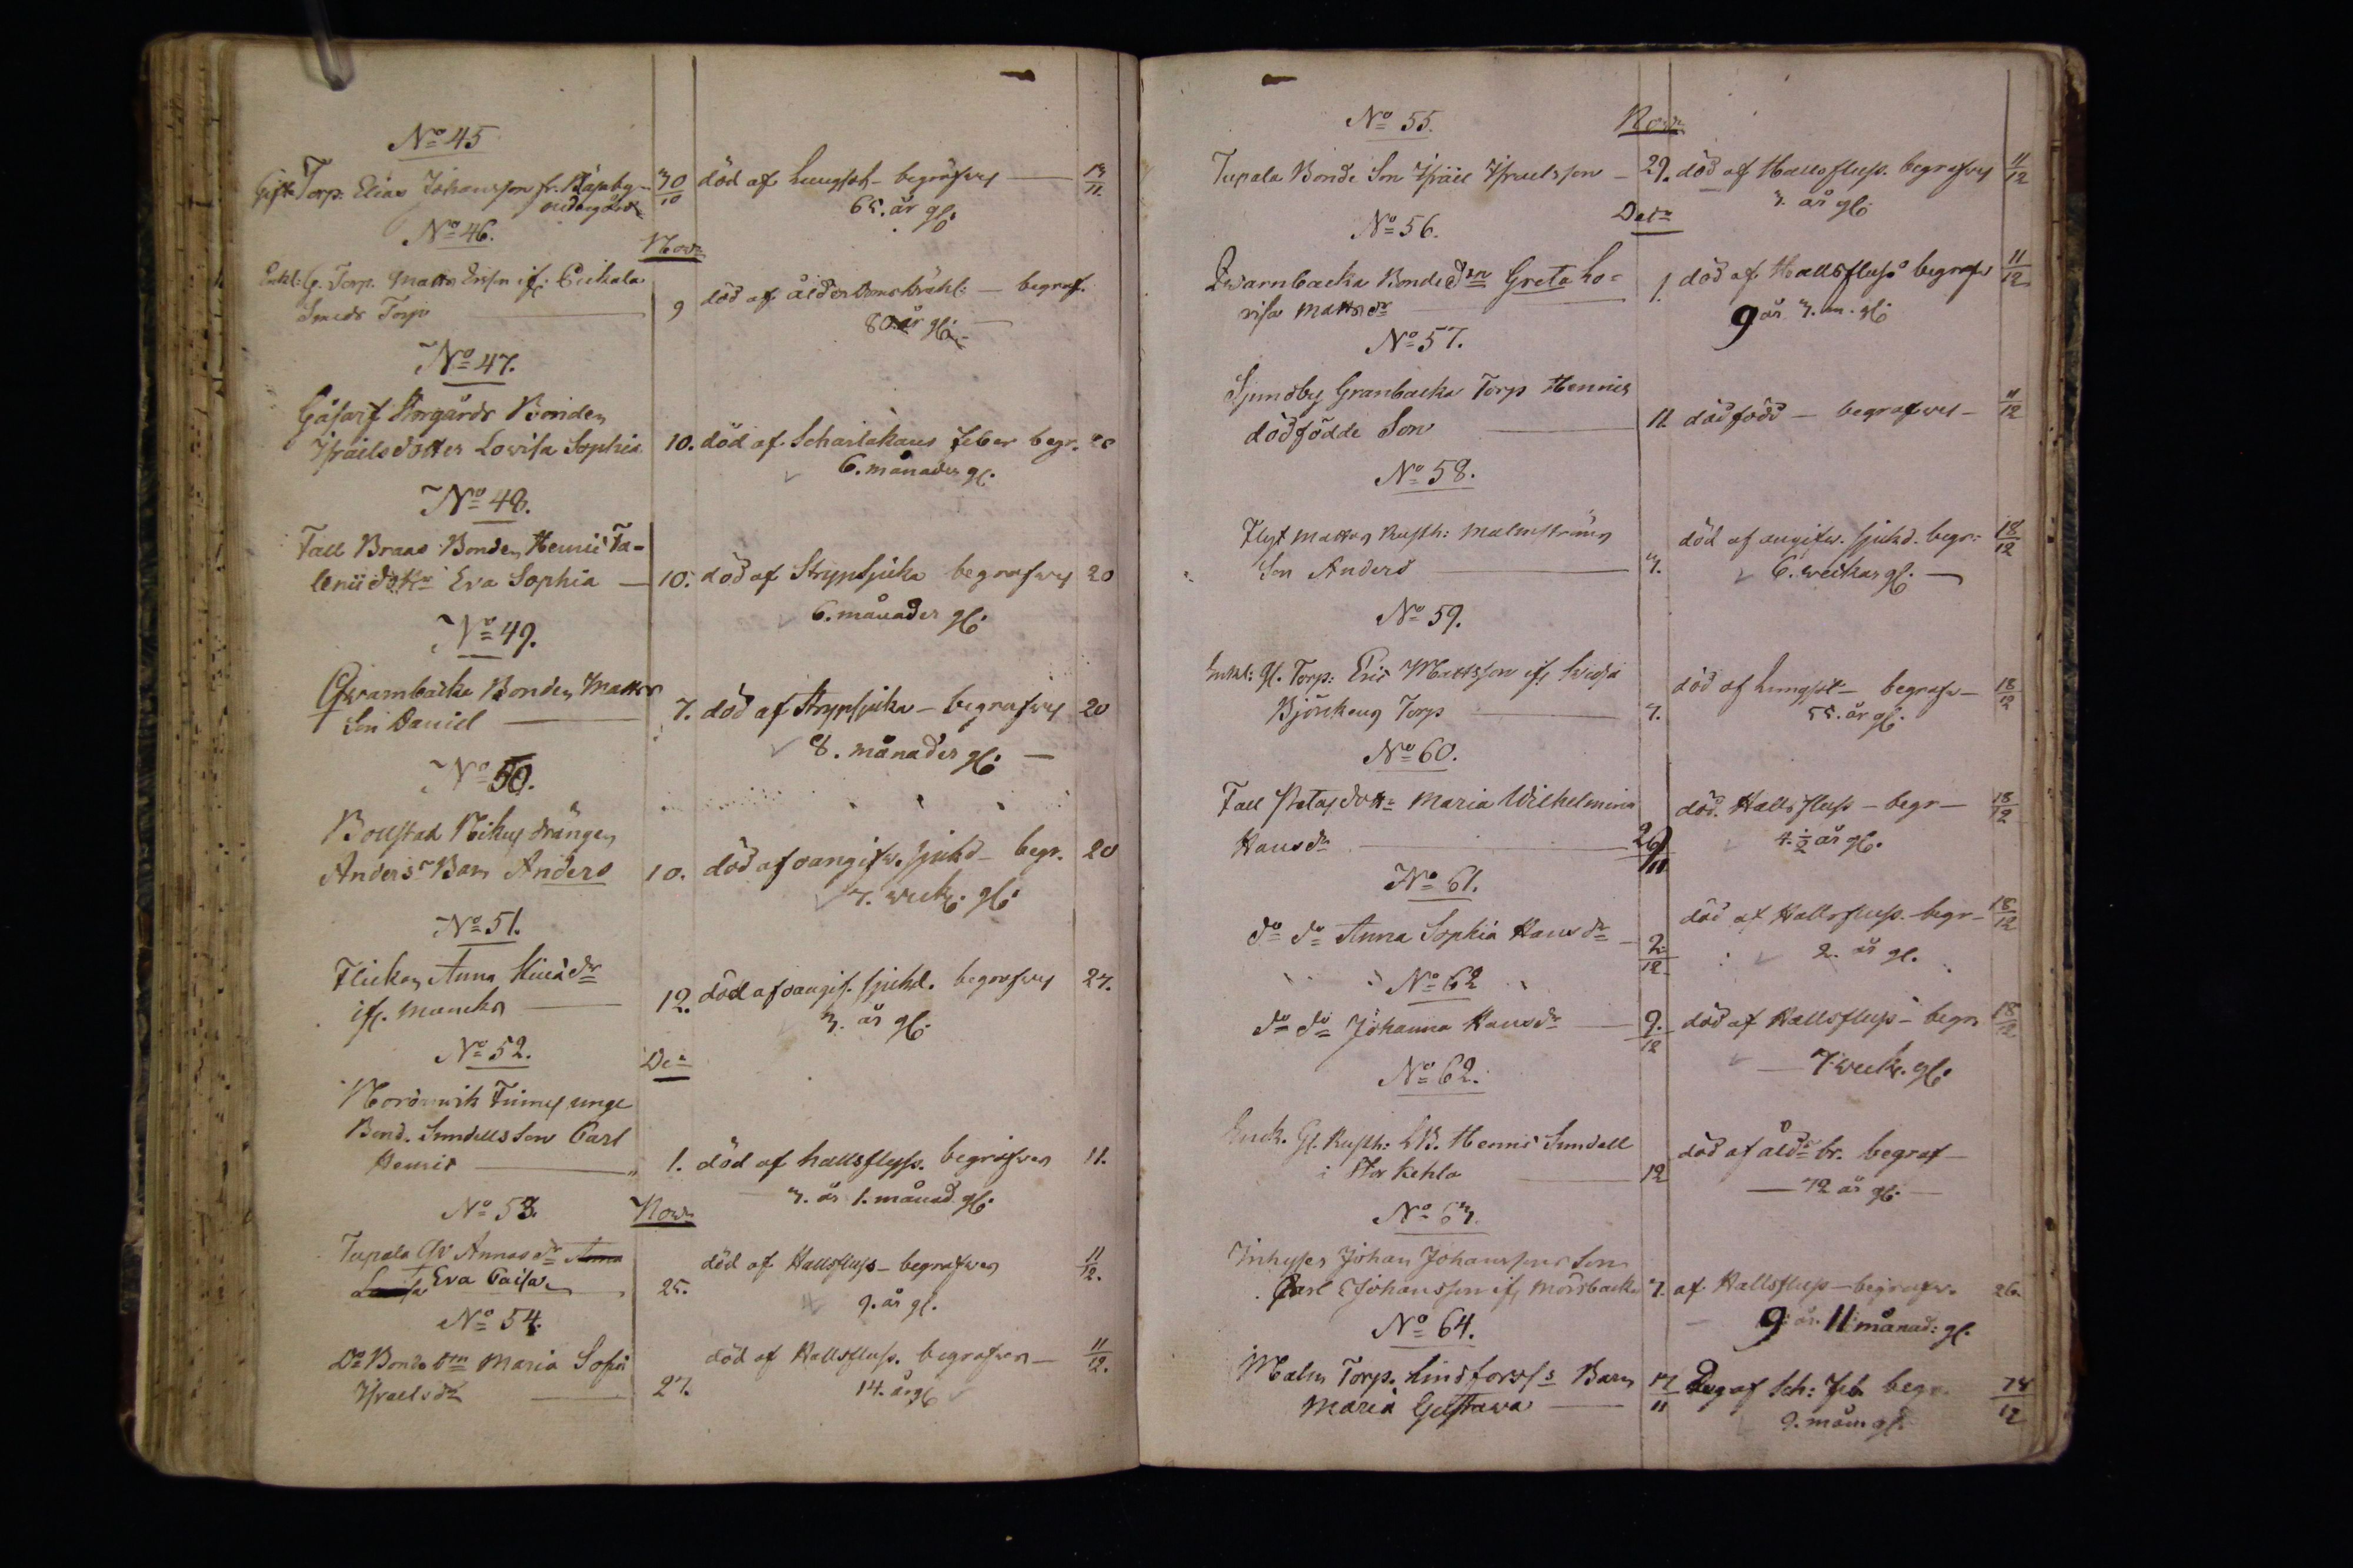 No 45
Gift Torp. Elias Johansson fr. Näseby 30/10 död af Lungsot - begrafves 13/11.
nedergård 65. år gl.
No 46.
Novr
Enkl: G. Torp. Matts Ersson ifr.
Smeds Torp 9 död af ålderdomsbräckl: - begraf.
80 år gl:
No 47.
Gåsarf Storgårds Bonden
Israels dotter Lovisa Sophia 10. död af Scharlakans feber begr. 20
6. månader gl.
No 48.
Fall Braas Bonden Henric Fa-
lenii dottr Eva Sophia 10. död af Strypsjuka begrafves 20
6. månader gl:
No 49.
Qvarnbacka Bonden Matts
Son Daniel 7. död af Strypsjuka - begrafves 20
8. månader gl:
No 50.
Bollstad Nikus drängen
Anders Barn Anders 10. död af oangifv. sjukd - begr. 20
7. veck. gl:
No 51.
Flickan Anna dr
ifr. Muncks 12. död af oangif. sjukd. begrafves 27.
3. år gl.
No 52.
Decr
Nordervik Finnes unge
Bond. Sundells Son Carl
Henric 1. död af hallsflyss. begrafven 11.
3. år 1. månad gl:
No 53.
Novr
Tupala Annas dr Anna
Lovisa Eva Caisa 25. död af Hallsfluss - begrafven 11/12.
9. år gl.
No 54.
Do Bonde dtn Maria Sofia
Israelsdr 27. död af Hallsfluss. begrafven - 11/12.
14. år gl
No 55.
Novr
Tupala Bonde Son Israël Israelsson - 29. död af Hallsfluss. begrafves 11/12
3. år gl:
No 56.
Decr
Qvarnbacka Bonde dtn Greta Lo-
visa Mattsdr 1. död af Hallsfluss begrafv 11/12
9 år 3. m. gl:
No 57.
Sjundby Granbacka Torp Henrics
dödfödde Son 11. dödfödd - begrafves - 11/12
No 58.
Flyt Mattas Rusth: Malmströms
Son Anders 3. död af oangifv. sjukd. begr: 18/12
6. veckor gl.
No 59.
Enkl: Gl. Torp: Eric Mattsson ifr
Björkeng Torp 7. död af Lungsot - begrafv - 18/12
55. år gl.
No 60.
Fall Statas dottr Maria Wilhelmina
Hansdr 29/11 död. Hallsfluss - begr - 18/12
4. 1/2 år gl.
No 61.
do do Anna Sophia Hansdr - 2/12 död af Hallsfluss - begr - 18/12
2. år gl.
No 62
do do Johanna Hansdr 9./12 död af Hallsfluss - begr 18/12
7. veck. gl.
No 62.
Enck. Gl. Rusth: Henric Sundell
i Stor Kehla 12 död af åldr br. begraf -
72 år gl. -
No 63.
Inhyses Johan Johanssons Son
Carl Johansson ifr Mörsbacka 7. af Hallsfluss - begrafv. 26.
9: år. 11 månad: gl.
No 64.
Malm Torp. Lindforss's Barn
Maria Gustava 17/11 af Sch: feb. begr. 18/12
9. mån gl.